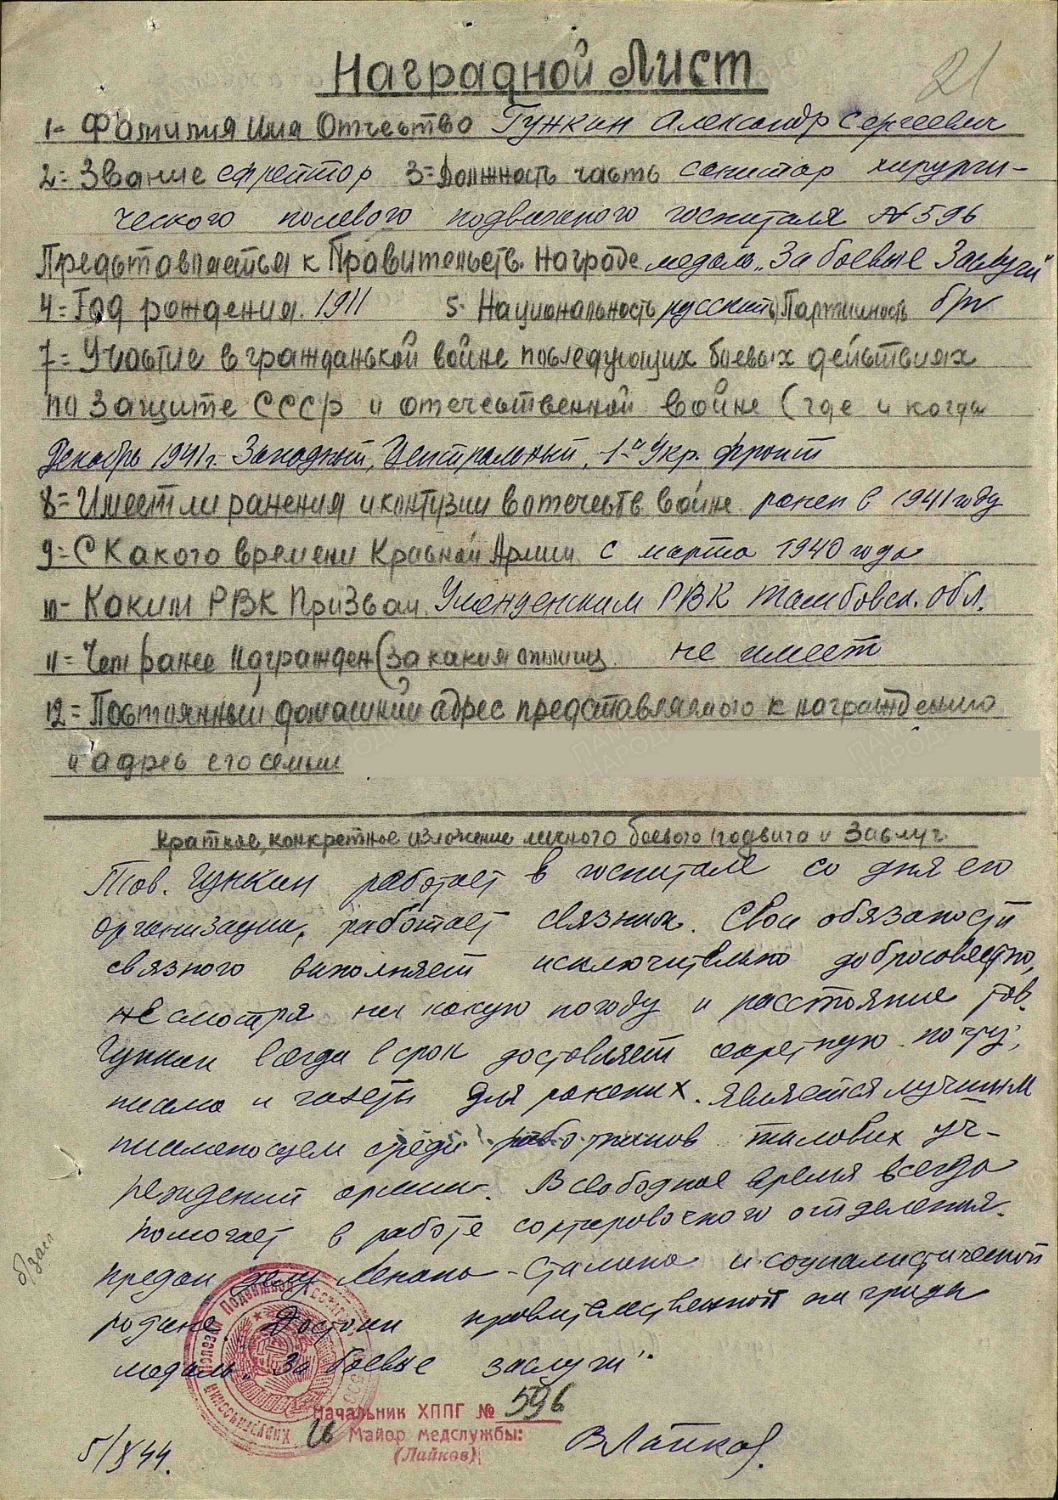 21
Наградной Лист
1- Фамилия Имя Отчество Гункин Александр Сергеевич
2= Звание ефрейтор 3= Должность часть санитар хирурги-
ческого полевого подвижного госпиталя № 596
Представляется к Правительств. Награде медаль „За боевые Заслуги"
4= Год рождения. 1911 5= Национальность русский Партийность б/п
7= Участие в гражданской войне последующих боевых действиях
по защите СССР и отечественной войне (где и когда
Декабрь 1941 г. Западный, Центральный, 1-й Укр. фронт
8= Имеет ли ранения и контузии в отечеств. войне ранен в 1941 году
9= С Какого времени Красной Армии с марта 1940 года
10- Каким РВК Призван. РВК Тамбовск. обл.
11= Чем ранее Награжден (за какия не имеет
12= Постоянный домашний адрес представляемого к награждению
и адрес его семьи
Краткое, конкретное изложение личного боевого подвига и Заслуг.
Тов. Гункин работает в госпитале со дня его
организации, работает связным. Свои обязаности
связного выполняет исключительно добросовестно,
не смотря на какую погоду и расстояние тов.
Гункин всегда в срок доставляет секретную почту,
письма и газеты для раненых. Является лучшим
письмоносцем среди работников тыловых уч-
реждений армии. В свободное время всегда
помогает в работе сортировочного отделения.
Предан делу Ленина - Сталина и социалистической
родине. Достоин правительственной награды
медаль „За боевые заслуги".
б/зал
Начальник ХППГ № 596
Майор медслужбы:
(Лайков)
ВЛайков
5/X 44.